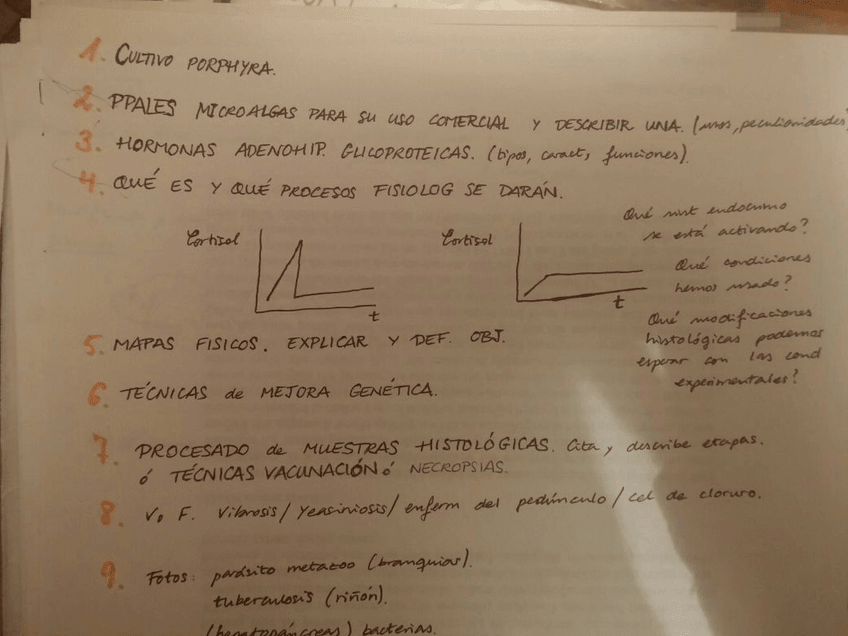 1. CULTIVO PORPHYRA.
2. PPALES MICROALGAS PARA SU USO COMERCIAL Y DESCRIBIR UNA. (usos, peculiaridades)
3. HORMONAS ADENOHIP. GLICOPROTEICAS. (tipos, caract, funciones).
4. QUÉ ES Y QUÉ PROCESOS FISIOLOG SE DARÁN.
Cortisol
t
Cortisol
t
Qué sist endocrino
se está activando?
Qué condiciones
hemos usado?
Qué modificaciones
histológicas podemos
esperar con las cond
experimentales?
5. MAPAS FISICOS. EXPLICAR Y DEF. OBJ.
6. TÉCNICAS de MEJORA GENÉTICA.
7. PROCESADO de MUESTRAS HISTOLÓGICAS. Cita y describe etapas.
ó TÉCNICAS VACUNACIÓN ó NECROPSIAS.
8. V o F. Vibrosis / Yeasiniosis / enferm del pedúnculo / cel de cloruro.
9. FOTOS: parásito metazoo (branquias).
tuberculosis (riñón).
(hepatopáncreas) bacterias.